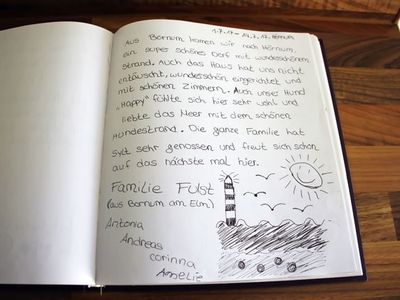 1.7.17 – 14.7.17, Hörnum
Aus Bornum kamen wir nach Hörnum,
ein super schönes Dorf mit wunderschönem
Strand. Auch das Haus hat uns nicht
entäuscht, wunderschön eingerichtet und
mit schönen Zimmern. Auch unser Hund
"Happy" fühlte sich hier sehr wohl und
liebte das Meer mit dem schönen
Hundestrand. Die ganze Familie hat
Sylt sehr genossen und freut sich schon
auf das nächste mal hier.
Familie Fulst
(aus Bornum am Elm)
Antonia
Andreas
Corinna
Amelie